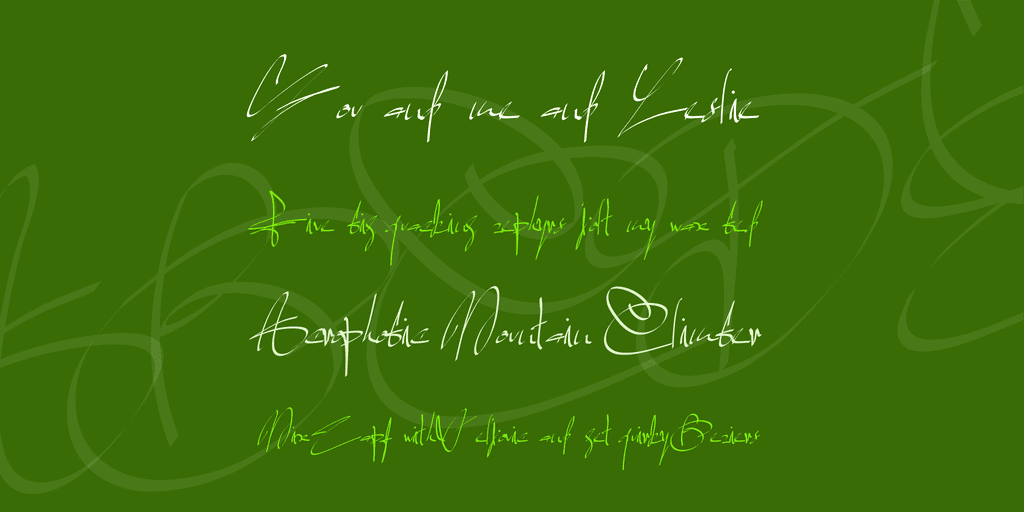 You and me and Leslie
Five big quacking zephyrs jolt my wax bed
Aerophobic Mountain Climber
Mix Zapf with Veljovic and get quirky Beziers